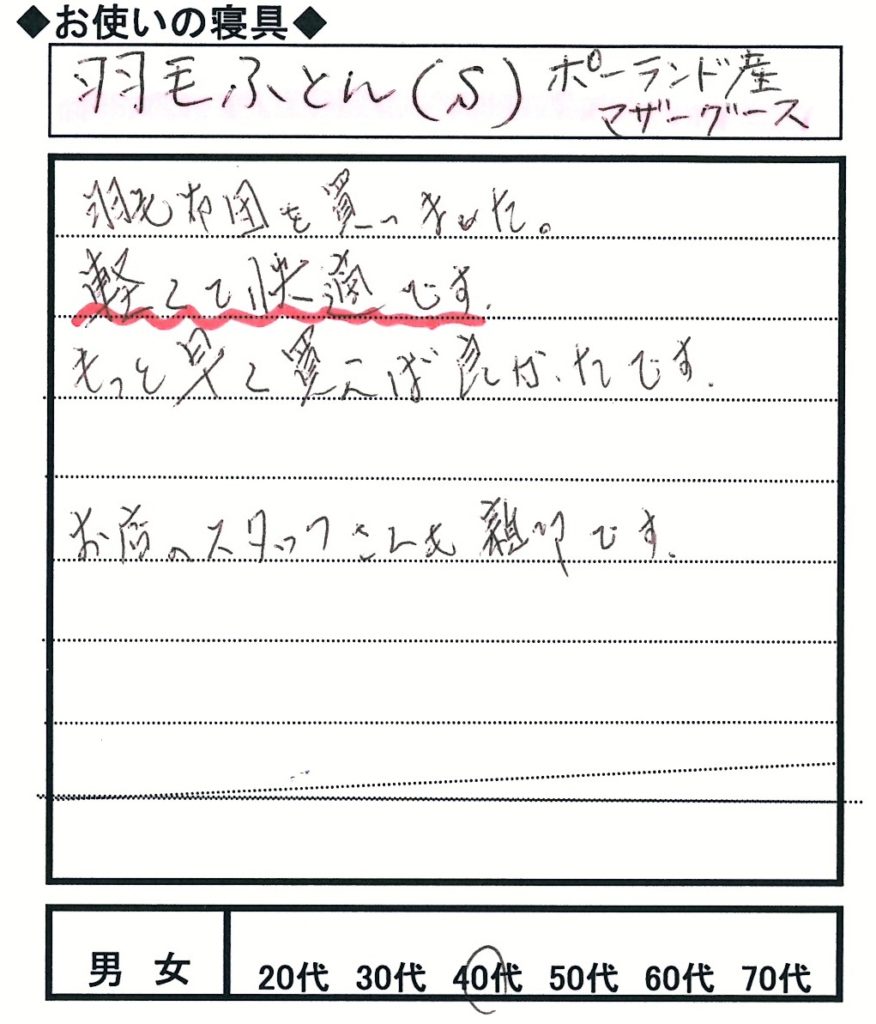 ◆お使いの寝具◆
羽毛ふとん(S) ポーランド産
マザーグース
羽毛布団を買いました。
軽くて快適です。
もっと早く買えば良かったです。
お店のスタッフさんも親切です。
男 女 20代 30代 40代 50代 60代 70代